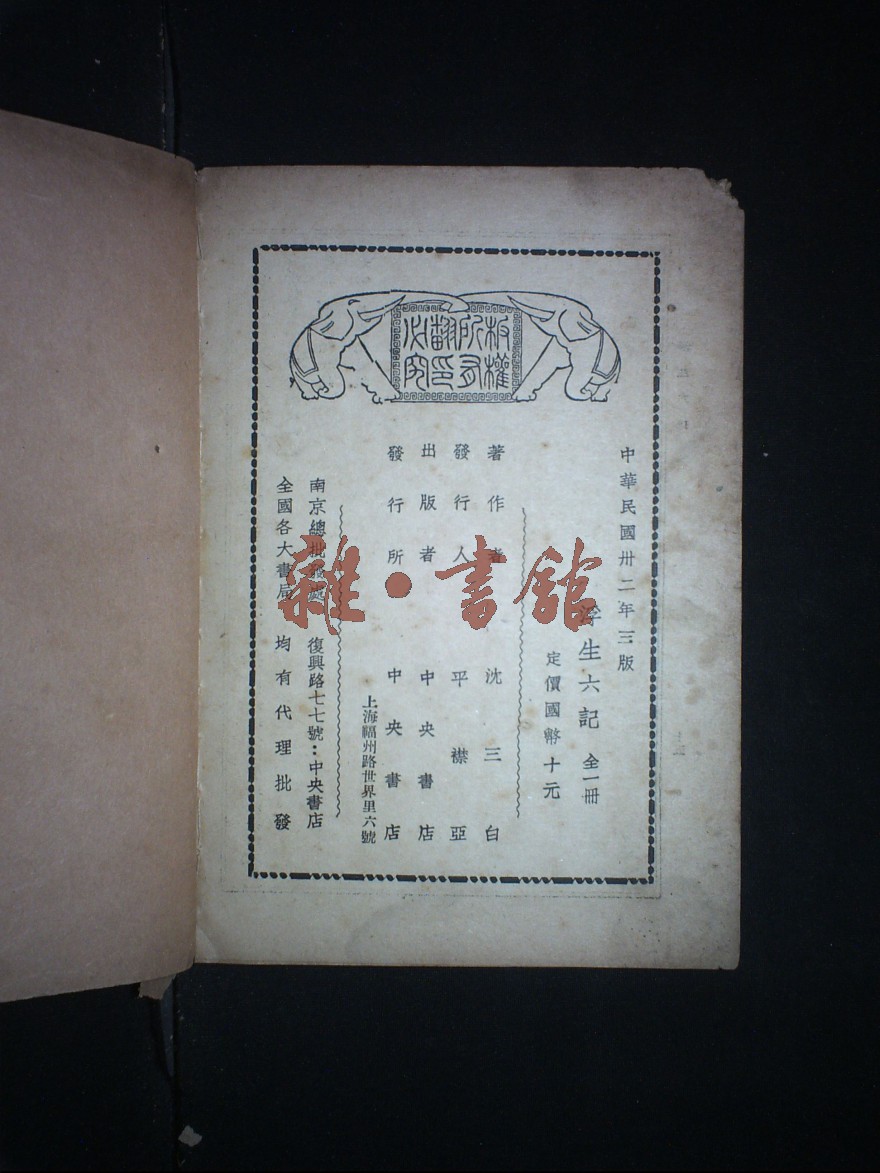 板權所有翻印必究
中華民國卅二年三版
浮生六記 全一冊
定價國幣十元
著作者 沈三白
發行人 平襟亞
出版者 中央書店
發行所 中央書店
上海福州路世界里六號
南京總批發處 復興路七七號：中央書店
全國各大書局 均有代理批發
雜·書館